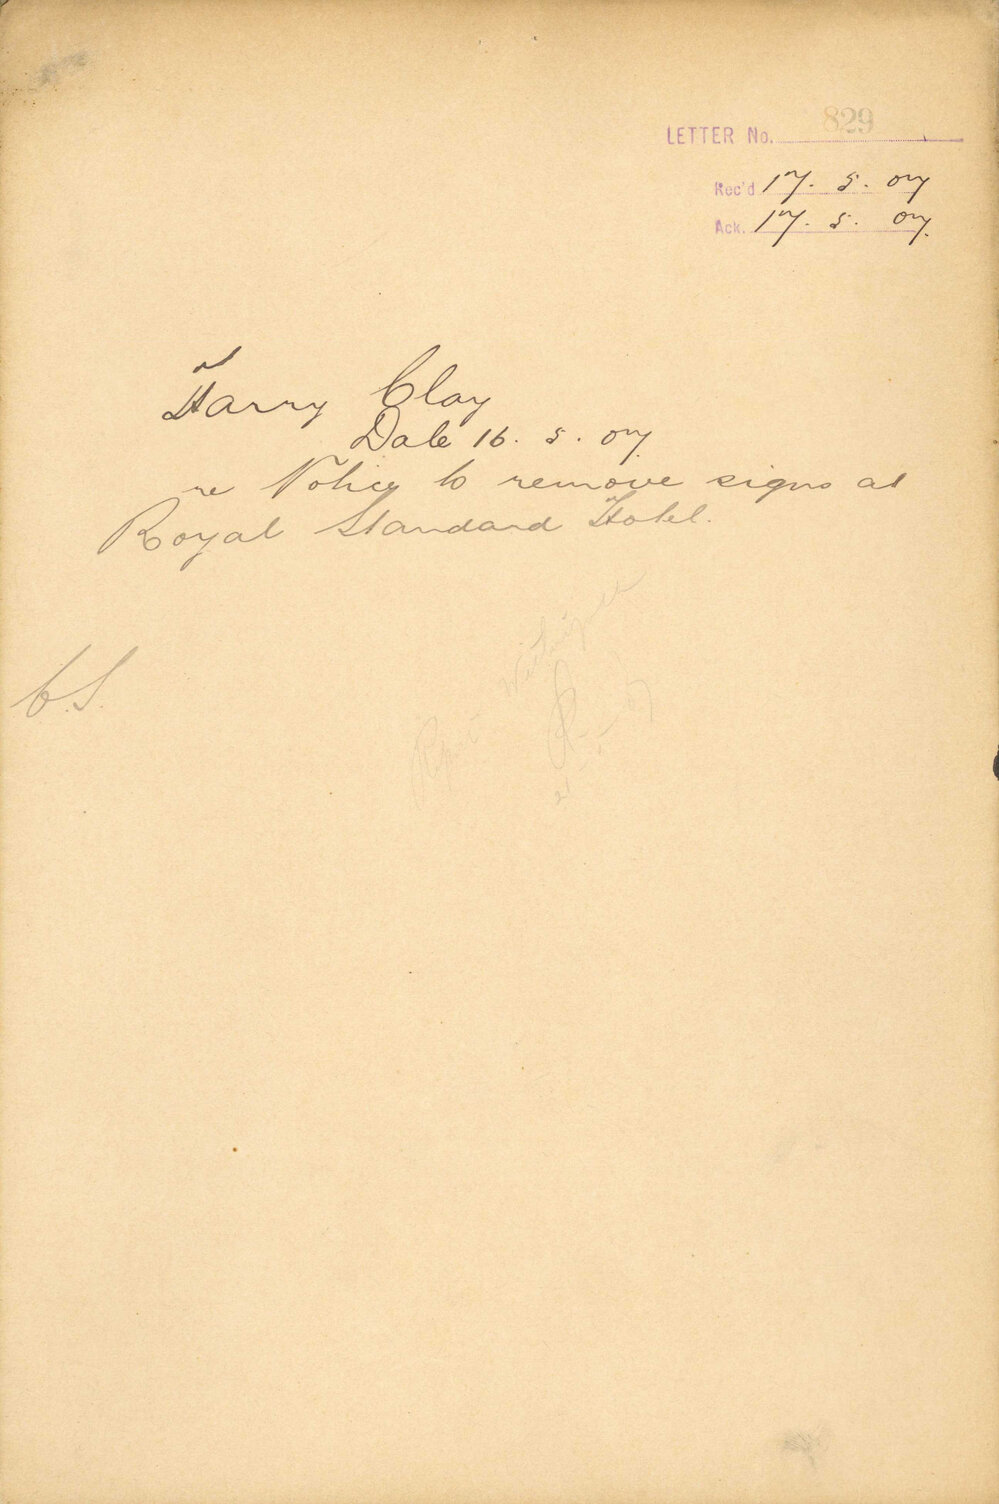 LETTER No. 829
Rec'd 17. 5. 07
Ack. 17. 5. 07.
Harry Clay
Date 16. 5. 07
re Notice to remove signs at
Royal Standard Hotel.
C.S.